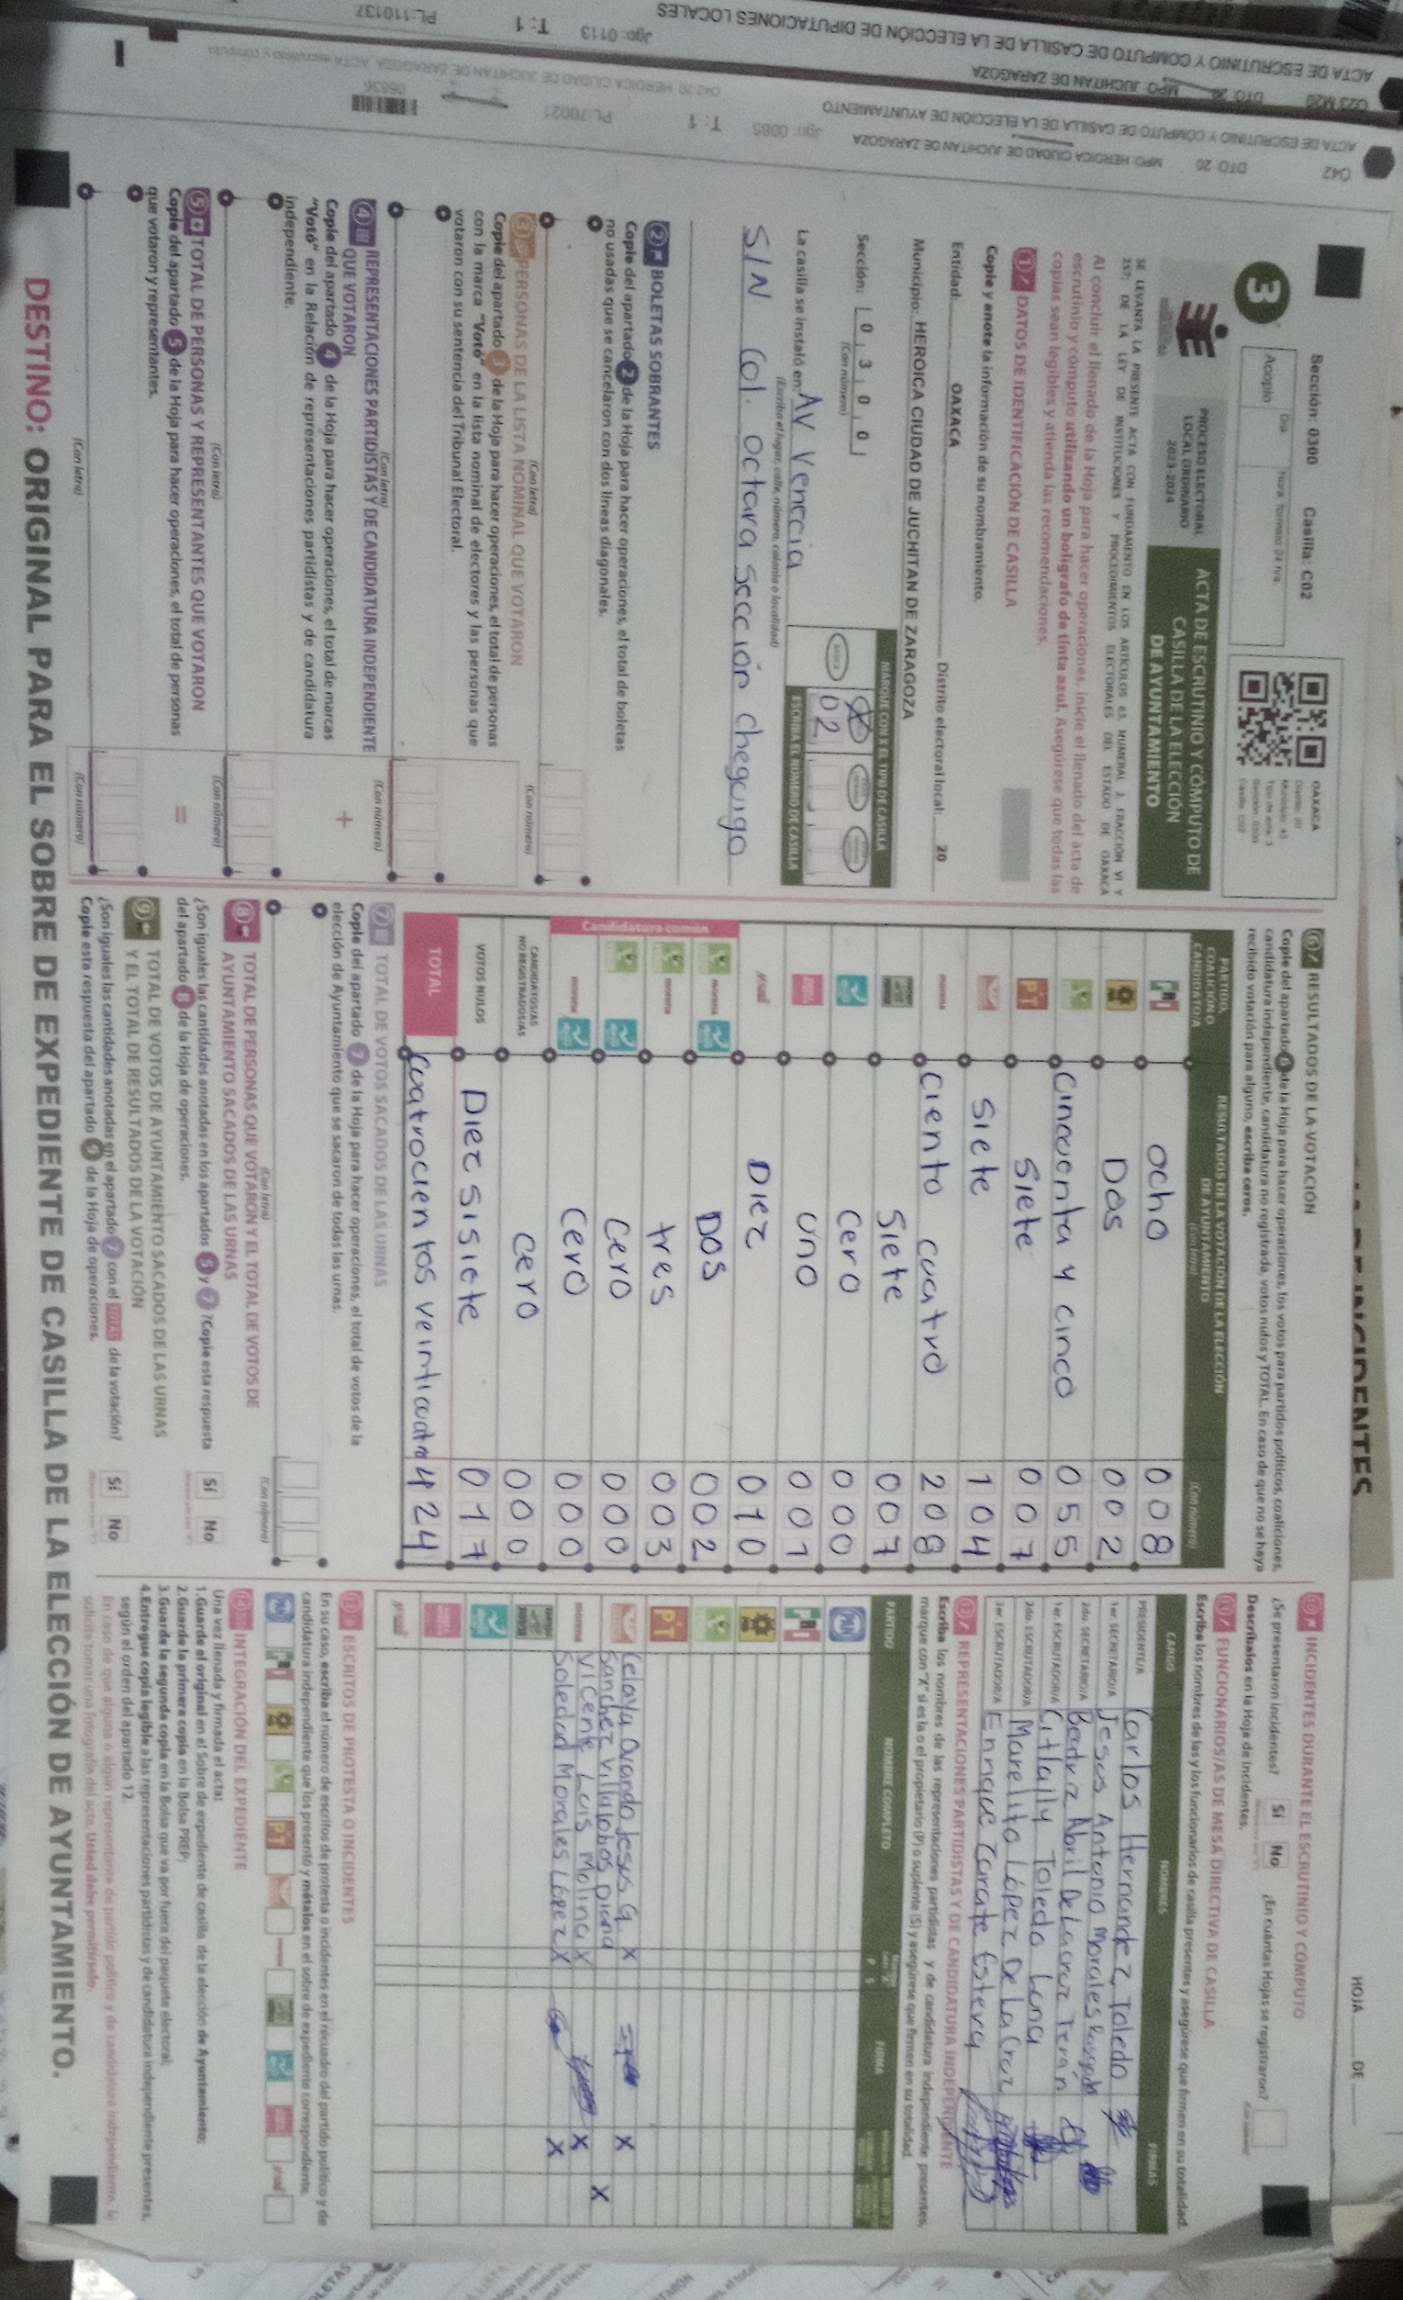 HOJA ____ DE ____
Sección: 0300 Casilla: C02
3
Acopio
Día
Hora formato 24 hrs.
OAXACA
PROCESO ELECTORAL
LOCAL ORDINARIO
2023-2024
ACTA DE ESCRUTINIO Y CÓMPUTO DE
CASILLA DE LA ELECCIÓN
DE AYUNTAMIENTO
SE LEVANTA LA PRESENTE ACTA CON FUNDAMENTO EN LOS ARTÍCULOS 63, NUMERAL 2, FRACCIÓN VI Y
257; DE LA LEY DE INSTITUCIONES Y PROCEDIMIENTOS ELECTORALES DEL ESTADO DE OAXACA
Al concluir el llenado de la Hoja para hacer operaciones, inicie el llenado del acta de
escrutinio y cómputo utilizando un bolígrafo de tinta azul. Asegúrese que todas las
copias sean legibles y atienda las recomendaciones.
1 DATOS DE IDENTIFICACIÓN DE CASILLA
Copie y anote la información de su nombramiento.
Entidad: OAXACA Distrito electoral local: 20
Municipio: HEROICA CIUDAD DE JUCHITAN DE ZARAGOZA
Sección: 0 3 0 0
(Con número)
MARQUE CON X EL TIPO DE CASILLA
02
ESCRIBA EL NÚMERO DE CASILLA
La casilla se instaló en: AV Veneccia
(Escriba el lugar, calle, número, colonia o localidad)
S/N Col. Octara Sección chegengo
2 BOLETAS SOBRANTES
Copie del apartado 2 de la Hoja para hacer operaciones, el total de boletas
no usadas que se cancelaron con dos líneas diagonales.
(Con letra) (Con número)
3 PERSONAS DE LA LISTA NOMINAL QUE VOTARON
Copie del apartado 3 de la Hoja para hacer operaciones, el total de personas
con la marca "Votó" en la lista nominal de electores y las personas que
votaron con su sentencia del Tribunal Electoral.
(Con letra) (Con número)
4 REPRESENTACIONES PARTIDISTAS Y DE CANDIDATURA INDEPENDIENTE
QUE VOTARON
Copie del apartado 4 de la Hoja para hacer operaciones, el total de marcas
"Votó" en la Relación de representaciones partidistas y de candidatura
independiente.
+
(Con letra) (Con número)
5 TOTAL DE PERSONAS Y REPRESENTANTES QUE VOTARON
Copie del apartado 5 de la Hoja para hacer operaciones, el total de personas
que votaron y representantes.
=
(Con letra) (Con número)
6 RESULTADOS DE LA VOTACIÓN
Copie del apartado 6 de la Hoja para hacer operaciones, los votos para partidos políticos, coaliciones,
candidatura independiente, candidatura no registrada, votos nulos y TOTAL. En caso de que no se haya
recibido votación para alguno, escriba ceros.
PARTIDO,
COALICIÓN O
CANDIDATO/A
RESULTADOS DE LA VOTACIÓN DE LA ELECCIÓN
DE AYUNTAMIENTO
(Con letra) (Con número)
PRI ocho 008
Dos 002
Cincuenta y cinco 055
PT Siete 007
Siete 104
morena Ciento cuatro 208
Siete 007
Cero 000
uno 001
Diez 010
Candidatura común
morena Dos 002
morena tres 003
Cero 000
morena Cero 000
CANDIDATOS/AS
NO REGISTRADOS/AS
Cero 000
VOTOS NULOS Diez sisiete 017
TOTAL Cuatrocientos veinticuatro 424
7 TOTAL DE VOTOS SACADOS DE LAS URNAS
Copie del apartado 7 de la Hoja para hacer operaciones, el total de votos de la
elección de Ayuntamiento que se sacaron de todas las urnas.
(Con letra) (Con número)
8 TOTAL DE PERSONAS QUE VOTARON Y EL TOTAL DE VOTOS DE
AYUNTAMIENTO SACADOS DE LAS URNAS
¿Son iguales las cantidades anotadas en los apartados 5 y 7? Copie esta respuesta
del apartado 8 de la Hoja de operaciones.
Sí No
9 TOTAL DE VOTOS DE AYUNTAMIENTO SACADOS DE LAS URNAS
Y EL TOTAL DE RESULTADOS DE LA VOTACIÓN
¿Son iguales las cantidades anotadas en el apartado 7 con el TOTAL de la votación?
Copie esta respuesta del apartado 9 de la Hoja de operaciones.
Sí No
10 INCIDENTES DURANTE EL ESCRUTINIO Y CÓMPUTO
¿Se presentaron incidentes? Sí No ¿En cuántas Hojas se registraron?
Descríbalos en la Hoja de Incidentes.
11 FUNCIONARIOS/AS DE MESA DIRECTIVA DE CASILLA
Escriba los nombres de las y los funcionarios de casilla presentes y asegúrese que firmen en su totalidad.
CARGO NOMBRES FIRMAS
PRESIDENTE/A Carlos Hernandez Toledo
1er. SECRETARIO/A Jesus Antonio Morales
2do. SECRETARIO/A Beatriz Abril De La cruz Teran
1er. ESCRUTADOR/A Citlally Toledo Luna
2do. ESCRUTADOR/A Marelita López De La Cruz
3er. ESCRUTADOR/A Enrique Zarate Esteva
12 REPRESENTACIONES PARTIDISTAS Y DE CANDIDATURA INDEPENDIENTE
Escriba los nombres de las representaciones partidistas y de candidatura independiente presentes,
marque con "X" si es la o el propietario (P) o suplente (S) y asegúrese que firmen en su totalidad.
PARTIDO NOMBRE COMPLETO P S FIRMA
PAN
PRI
PT
Celaya Ovando Jesus G. X X
Sanchez Villalobos Diana X
morena Vicente Luis Molina X X
Soledad Morales López X X
13 ESCRITOS DE PROTESTA O INCIDENTES
En su caso, escriba el número de escritos de protesta o incidentes en el recuadro del partido político y de
candidatura independiente que los presentó y métalos en el sobre de expediente correspondiente.
14 INTEGRACIÓN DEL EXPEDIENTE
Una vez llenada y firmada el acta:
1.Guarde el original en el Sobre de expediente de casilla de la elección de Ayuntamiento;
2.Guarde la primera copia en la Bolsa PREP;
3.Guarde la segunda copia en la Bolsa que va por fuera del paquete electoral;
4.Entregue copia legible a las representaciones partidistas y de candidatura independiente presentes,
según el orden del apartado 12.
En caso de que alguna o algún representante de partido político y de candidatura independiente, le
solicite tomar una fotografía del acta, Usted debe permitírselo.
DESTINO: ORIGINAL PARA EL SOBRE DE EXPEDIENTE DE CASILLA DE LA ELECCIÓN DE AYUNTAMIENTO.
C42 DTO: 20 MPO: HEROICA CIUDAD DE JUCHITAN DE ZARAGOZA Jgo: 0085 T: 1 PL:70021
ACTA DE ESCRUTINIO Y CÓMPUTO DE CASILLA DE LA ELECCIÓN DE AYUNTAMIENTO
MPO: JUCHITAN DE ZARAGOZA Jgo: 0113 T: 1 PL:110137
ACTA DE ESCRUTINIO Y COMPUTO DE CASILLA DE LA ELECCIÓN DE DIPUTACIONES LOCALES